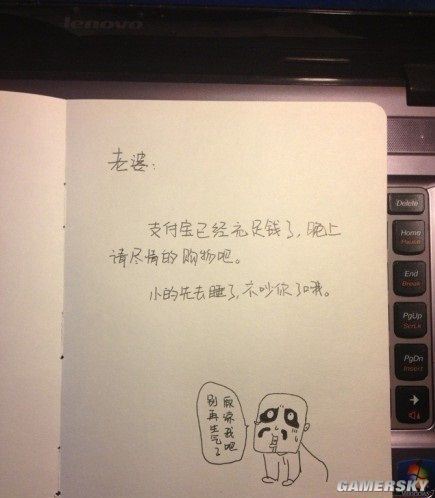 lenovo
老婆：
支付宝已经充足钱了，晚上
请尽情的购物吧。
小的先去睡了，不吵你了哦。
原谅我吧
别再生气了
Delete
Home
Pause
End
Break
PgUp
ScrLk
PgDn
Insert
GAMERSKY